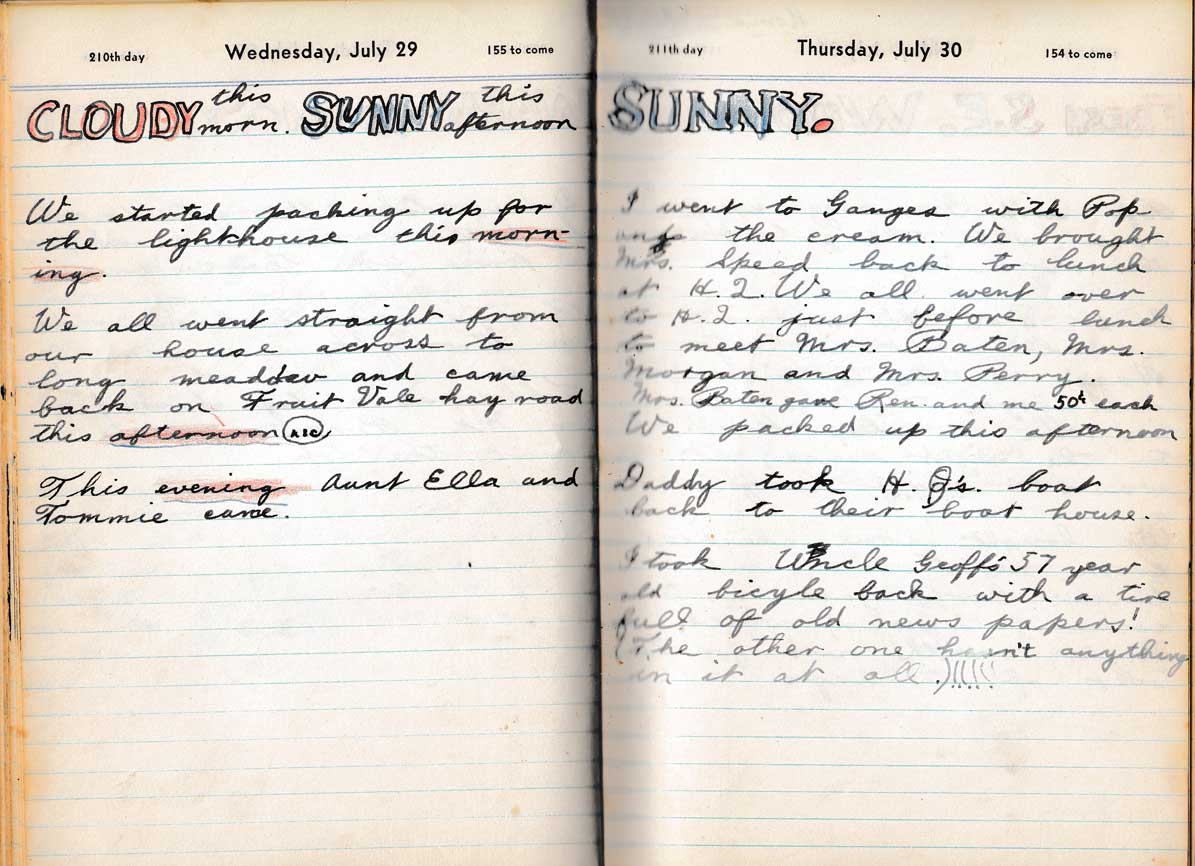 210th day Wednesday, July 29 155 to come
CLOUDY this morn. SUNNY this afternoon
We started packing up for
the lighthouse this morn-
ing.
We all went straight from
our house across to
long meaddow and came
back on Fruit Vale hay road
this afternoon
This evening Aunt Ella and
Tommie came.
211th day Thursday, July 30 154 to come
SUNNY.
I went to Ganges with Pop
the cream. We brought
Mrs. Speed back to lunch
at H.2. We all went over
to H.2. just before lunch
to meet Mrs. Baten, Mrs.
Morgan and Mrs. Perry.
Mrs. Baten gave Ren. and me 50¢ each
We packed up this afternoon
Daddy took H. J's. boat
back to their boat house.
I took Uncle Geoff's 57 year
old bicyle back with a tire
full of old news papers!
(The other one hasn't anything
in it at all.)!!!!!